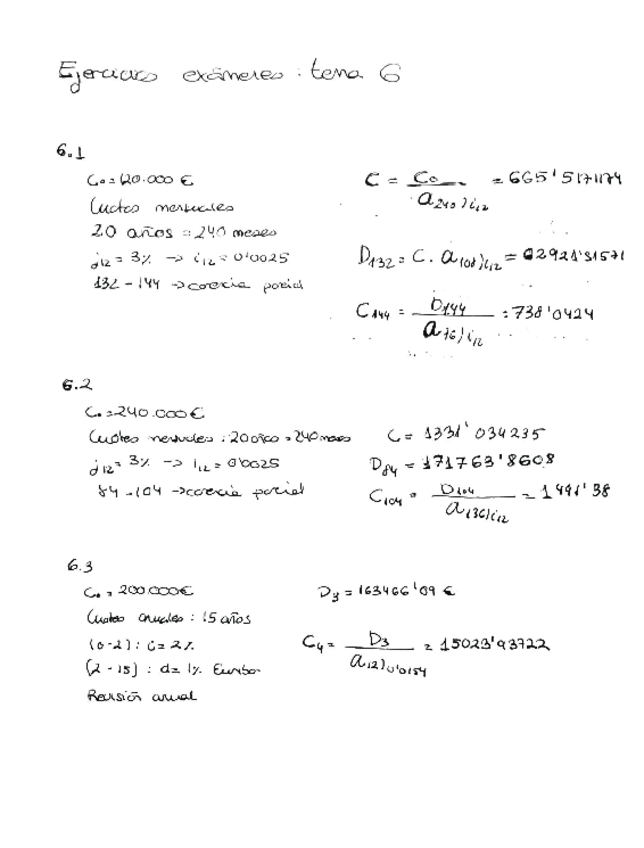 Ejercicios exámenes: tema 6
6.1
C₀ = 120.000 €
Cuotas mensuales
20 años = 240 meses
j₁₂ = 3% -> i₁₂ = 0'0025
132 - 144 -> carencia parcial
C = C₀ / a₂₄₀⌉i₁₂ = 665'5171174
D₁₃₂ = C . a₁₀₈⌉i₁₂ =
C₁₄₄ = D₁₄₄ / a₉₆⌉i₁₂ = 738'0424
6.2
C₀ = 240.000 €
Cuotas mensuales : 20 años = 240 meses
j₁₂ = 3% -> i₁₂ = 0'0025
84 - 104 -> carencia parcial
C = 1331'034235
D₈₄ = 171763'8608
C₁₀₄ = D₁₀₄ / a₁₃₆⌉i₁₂ = 1491'38
6.3
C₀ = 200.000 €
Cuotas anuales : 15 años
(0-2) : i = 2%
(2-15) : d = 1% Euribor
Revisión anual
D₃ = 163466'09 €
C₄ = D₃ / a₁₂⌉0'0154 = 15023'93722